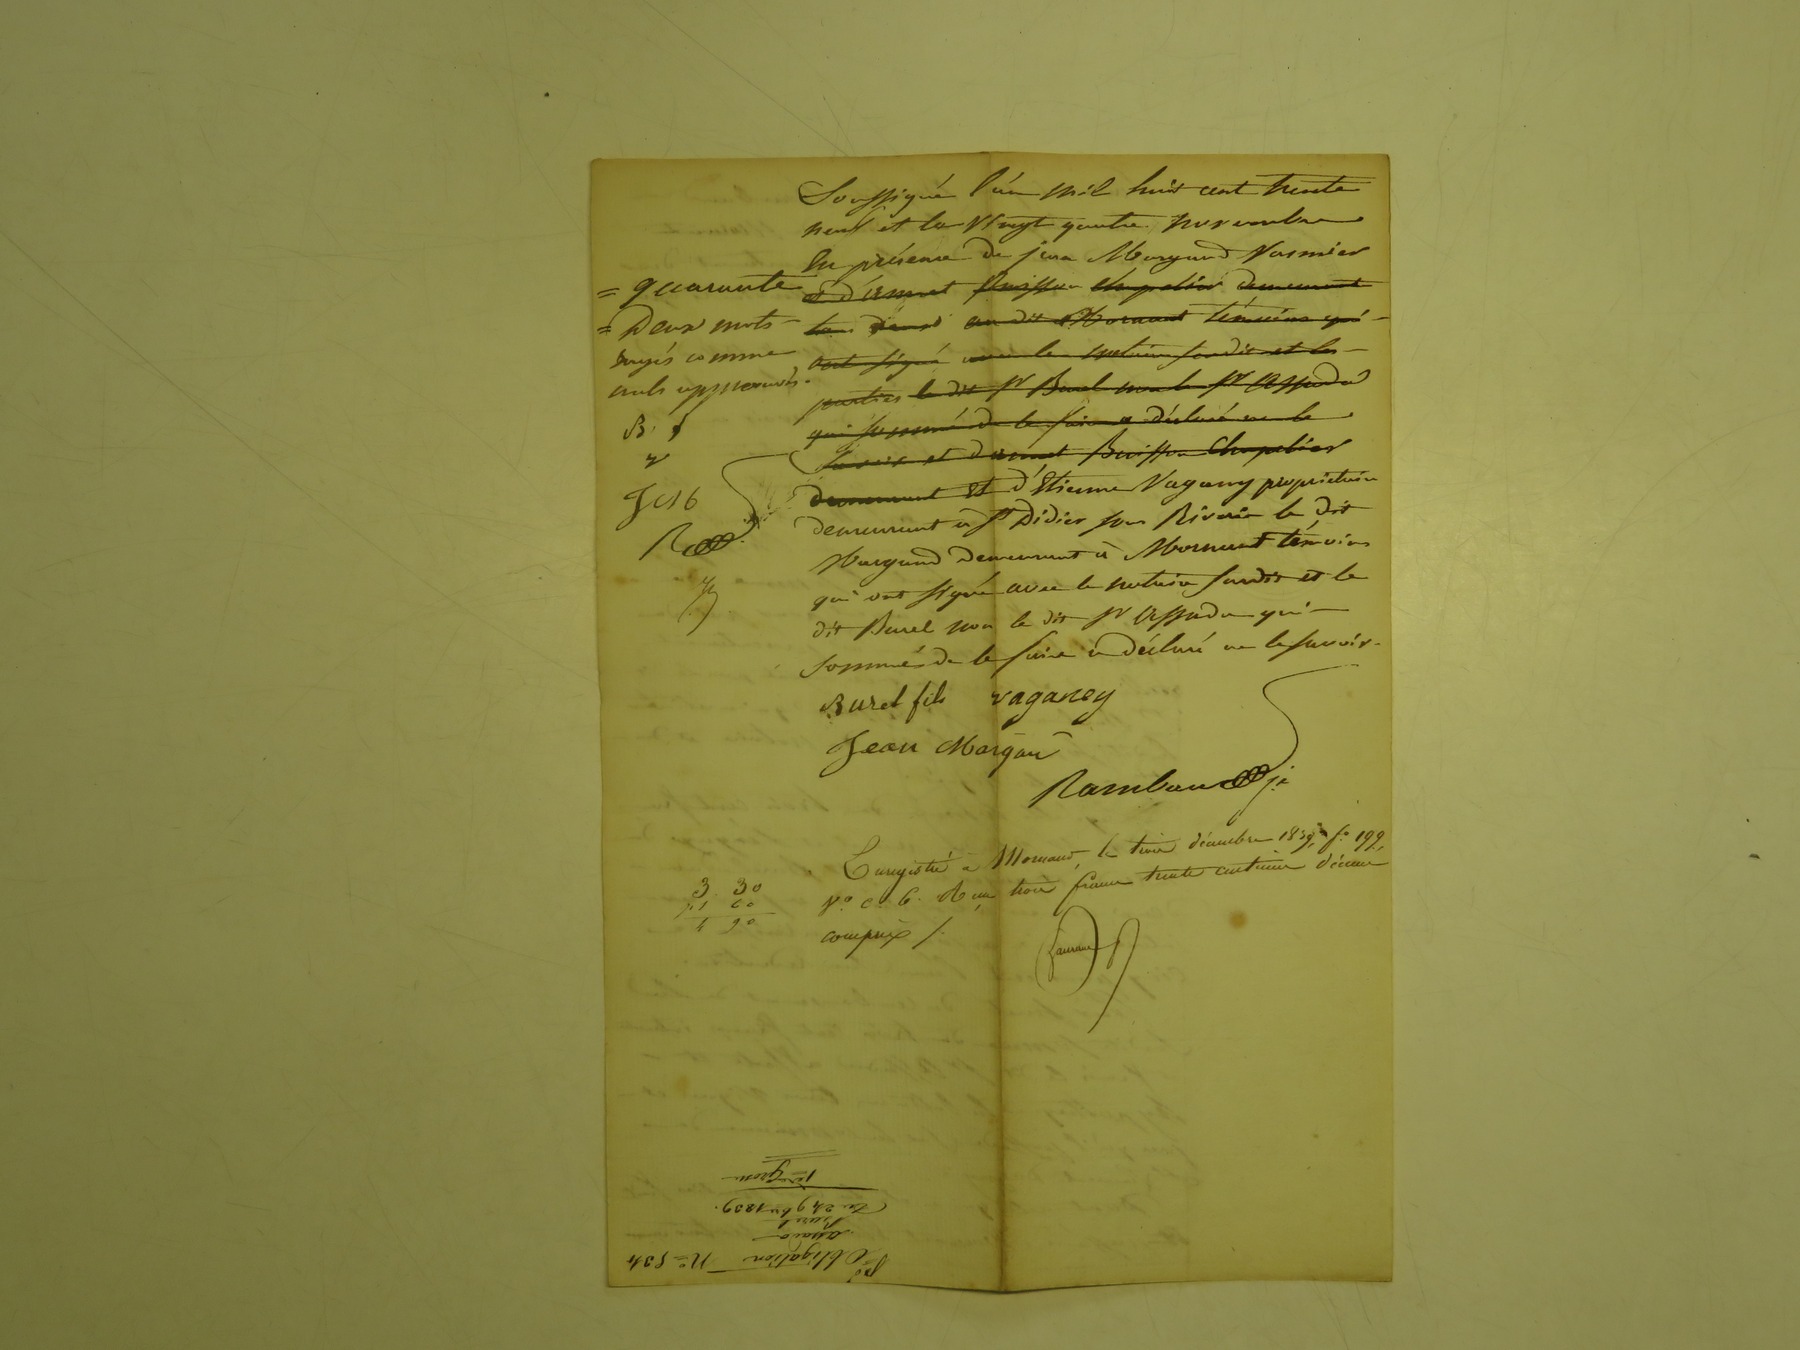 Soussigné l'an mil huit cent trente
neuf et le vingt quatre novembre
En présence de jean Margand
= quarante
= Deux mots
rayés comme
nuls approuvés.
B. f
V
J M
R
et d'ennet Buisson chapelier demeurant
tous deux au dit Mornant témoins qui
ont signé avec le notaire susdit et les
parties le dit Sr Burel non le Sr Assada
qui sommé de le faire a déclaré ne le
Savoir et d'ennet Buisson Chapelier
demeurant Et d'Etienne Vagany propriétaire
demeurant à St Didier sous Riverie le dit
Margand demeurant à Mornant témoins
qui ont signé avec le notaire susdit et le
dit Burel non le dit Sr Assada qui
sommé de le faire a déclaré ne le savoir.
Burel fils vaganey
Jean Margan
Rambaud je
Enregistré à Mornant, le trois décembre 1839, fo 199,
Vo c. 6. Reçu trois francs trente centimes décime
compris /.
3 30
1 60
4 90
Obligation No 534
assada
Burel
Du 24 9bre 1839.
1ere Grosse